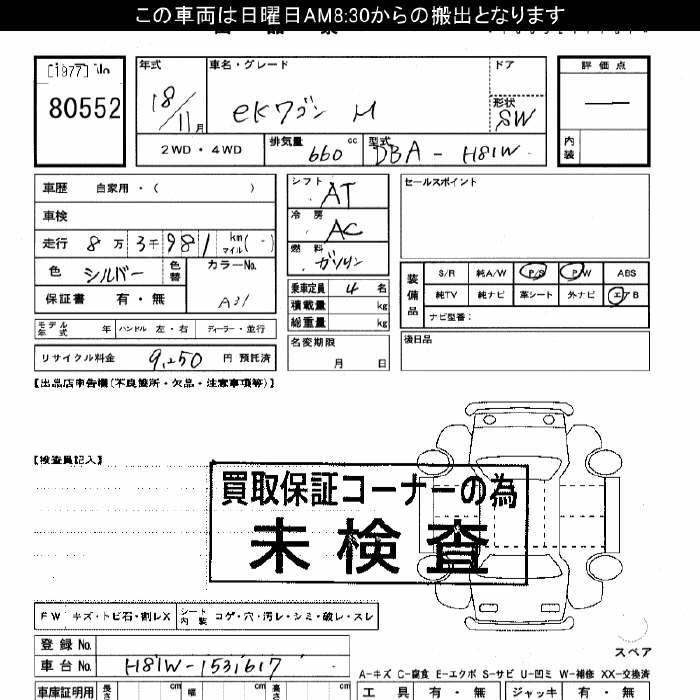 この車両は日曜日AM8:30からの搬出となります
[1977] No
80552
年式
18/11月
車名・グレード
eKワゴン M
ドア
形状
SW
評価点
—
内装
2WD・4WD
排気量
660 cc
型式
DBA-H81W
車歴 自家用・( )
車検
走行 8万3千981 km マイル(-)
色 シルバー
色替
カラーNo.
A31
保証書 有・無
モデル年式 年 ハンドル 左・右 ディーラー・並行
リサイクル料金 9,250 円 預託済
シフト AT
冷房 AC
燃料 ガソリン
乗車定員 4 名
積載量 kg
総重量 kg
名変期限
月 日
セールスポイント
装備品
S/R 純A/W P/S P/W ABS
純TV 純ナビ 革シート 外ナビ エアB
ナビ型番:
後日品
【出品店申告欄(不良箇所・欠品・注意事項等)】
【検査員記入】
買取保証コーナーの為
未検査
FW キズ・トビ石・割レX
シート内装 コゲ・穴・汚レ・シミ・破レ・スレ
登録No.
車台No. H81W-1531617
スペア
A-キズ C-腐食 E-エクボ S-サビ U-凹ミ W-補修 XX-交換済
車庫証明用 長さ cm 幅 cm 高さ cm
工具 有・無 ジャッキ 有・無